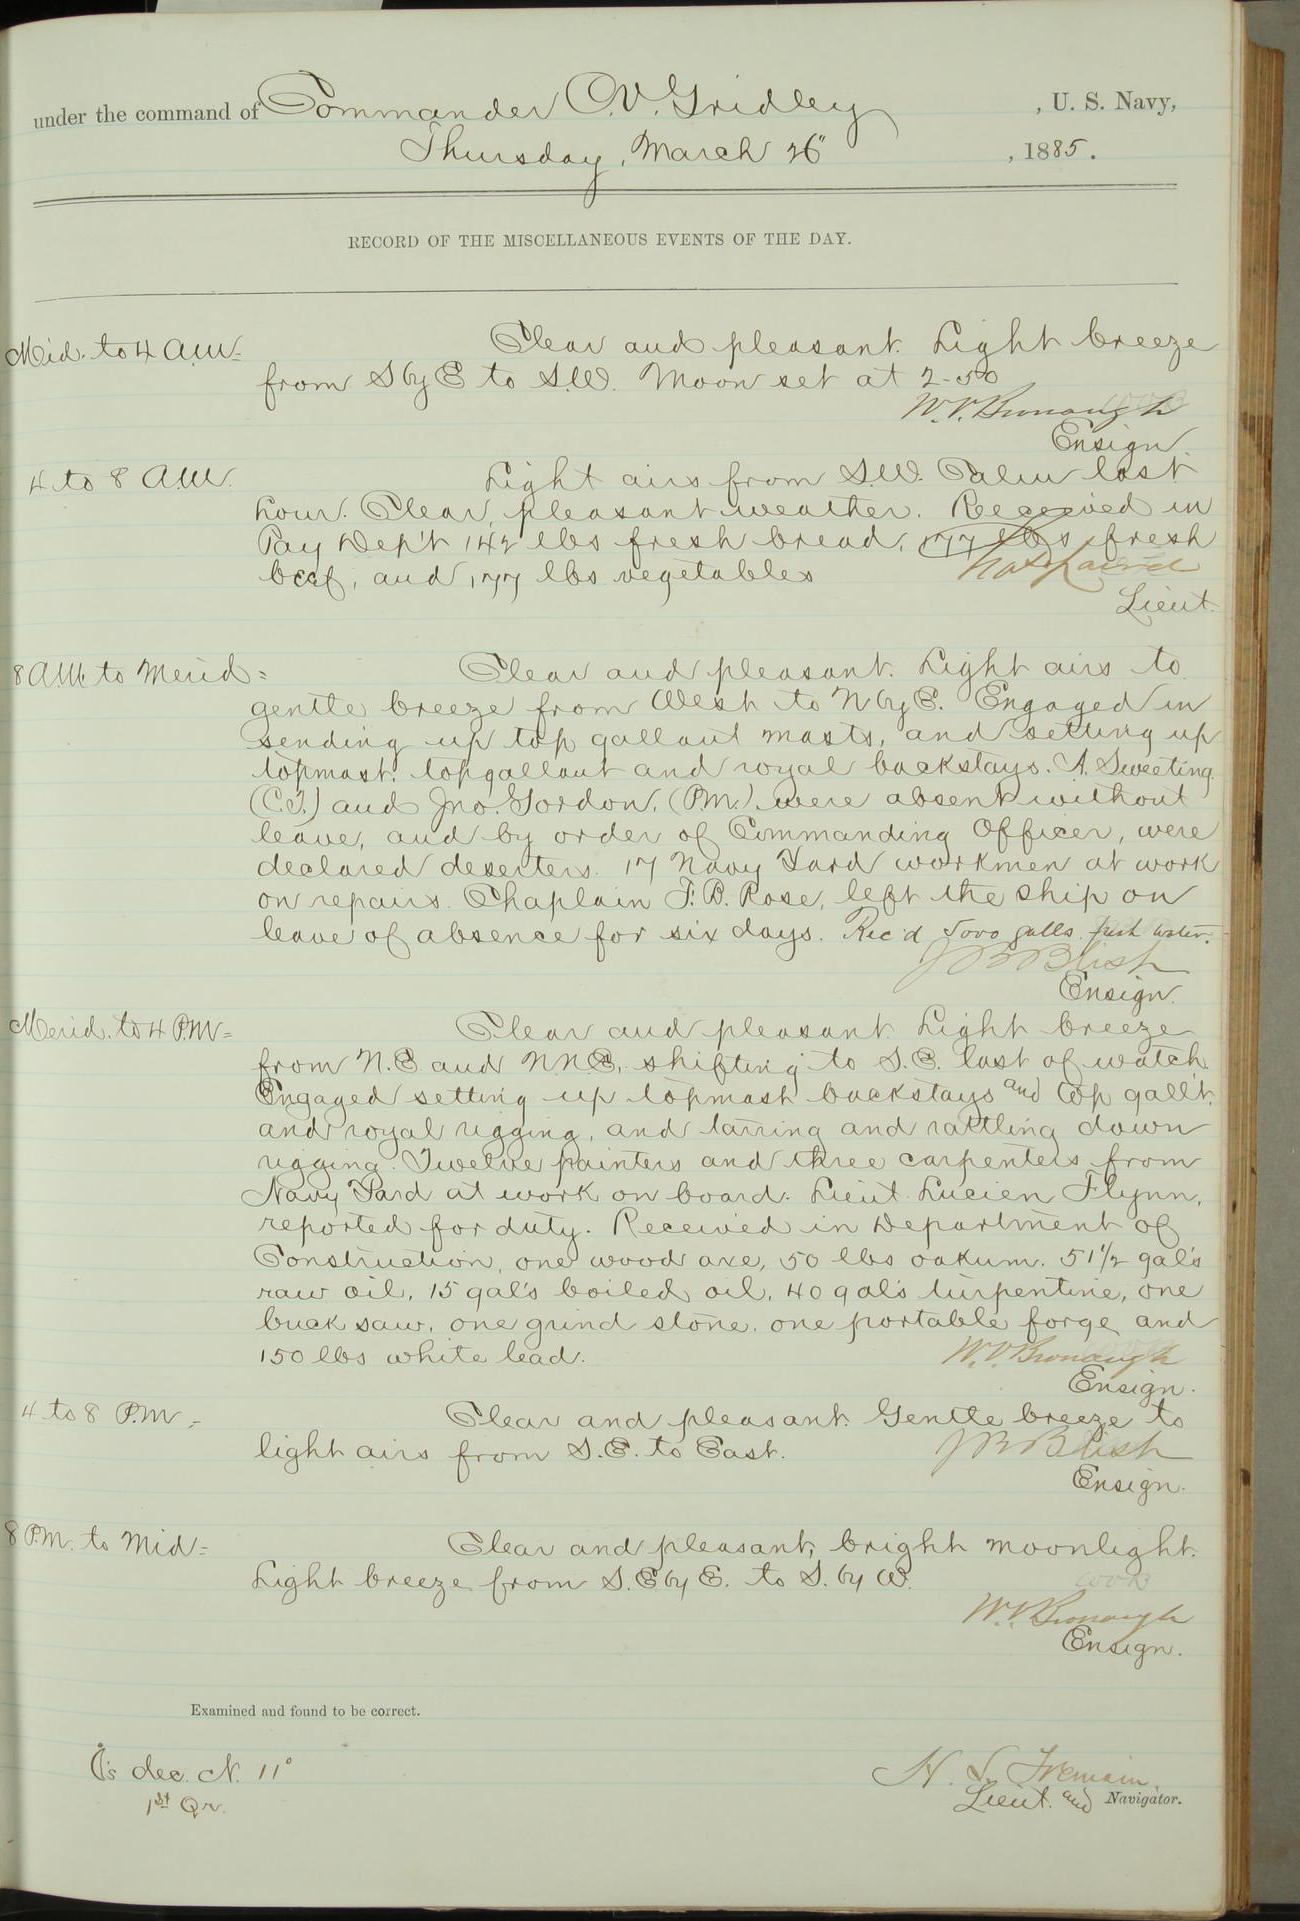 under the command of Commander C.V. Gridley , U. S. Navy,
Thursday, March 26" , 1885.
RECORD OF THE MISCELLANEOUS EVENTS OF THE DAY.
Mid. to 4 A.M. Clear and pleasant. Light breeze
from S by E to S.W. Moon set at 2-50
W.V. Bronaugh
Ensign
4 to 8 A.M. Light airs from S.W. Calm last
hour. Clear, pleasant weather. Received in
Pay Dep't 142 lbs fresh bread, 177 lbs fresh
beef, and 177 lbs vegetables
Lieut.
8 A.M. to Merid = Clear and pleasant. Light airs to
gentle breeze from West to N by E. Engaged in
sending up top gallant masts, and setting up
topmast, topgallant and royal backstays. A. Sweeting
(C.T.) and Jno. Gordon, (P.M.), were absent without
leave, and by order of Commanding Officer, were
declared deserters. 17 Navy Yard workmen at work
on repairs. Chaplain F.B. Rose, left the ship on
leave of absence for six days. Rec'd 5000 galls. fresh water.
J B Blish
Ensign.
Merid. to 4 P.M = Clear and pleasant. Light breeze
from N.E and N.N.E, shifting to S.E. last of watch.
Engaged setting up topmast backstays and top gall't.
and royal rigging, and tarring and rattling down
rigging. Twelve painters and three carpenters from
Navy Yard at work on board. Lieut. Lucien Flynn,
reported for duty. Received in Department of
Construction, one wood axe, 50 lbs oakum. 51 1/2 gal's
raw oil, 15 gal's boiled oil, 40 gal's turpentine, one
buck saw, one grind stone, one portable forge and
150 lbs white lead.
W.V. Bronaugh
Ensign.
4 to 8 P.M = Clear and pleasant. Gentle breeze to
light airs from S.E. to East.
J B Blish
Ensign.
8 P.M. to Mid = Clear and pleasant, bright moonlight.
Light breeze from S.E by E. to S. by W.
W.V. Bronaugh
Ensign.
Examined and found to be correct.
☾'s dec. N. 11°
1st Qr.
H. S. Tremain
Lieut. and Navigator.